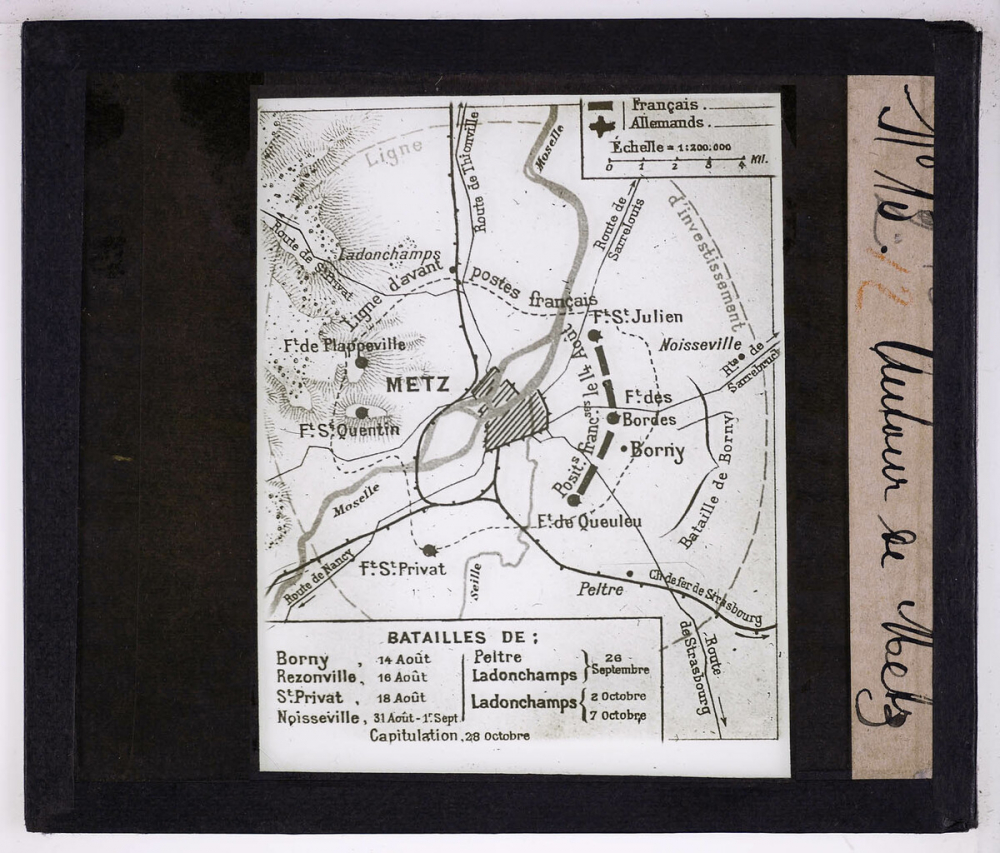 Français
Allemands
Échelle = 1:200.000
0 1 2 3 4 Kil.
Ligne
d'investissement
Route de Thionville
Moselle
Route de
Sarrelouis
Route de St Privat
Ladonchamps
Ligne d'avant postes français
Ft St Julien
Ft de Plappeville
Noisseville
Rte de
Sarrebruck
METZ
Posits françses le 14 Août
Ft des
Bordes
Ft St Quentin
Borny
Bataille de Borny
Moselle
Ft de Queuleu
Ft St Privat
Route de Nancy
Seille
Peltre
Ch de fer de Strasbourg
Route
de Strasbourg
BATAILLES DE :
Borny , 14 Août
Rezonville, 16 Août
St Privat , 18 Août
Noisseville, 31 Août - 1r Sept.
Peltre
Ladonchamps } 26 Septembre
Ladonchamps { 2 Octobre
7 Octobre
Capitulation, 28 Octobre
No
12
Autour de Metz